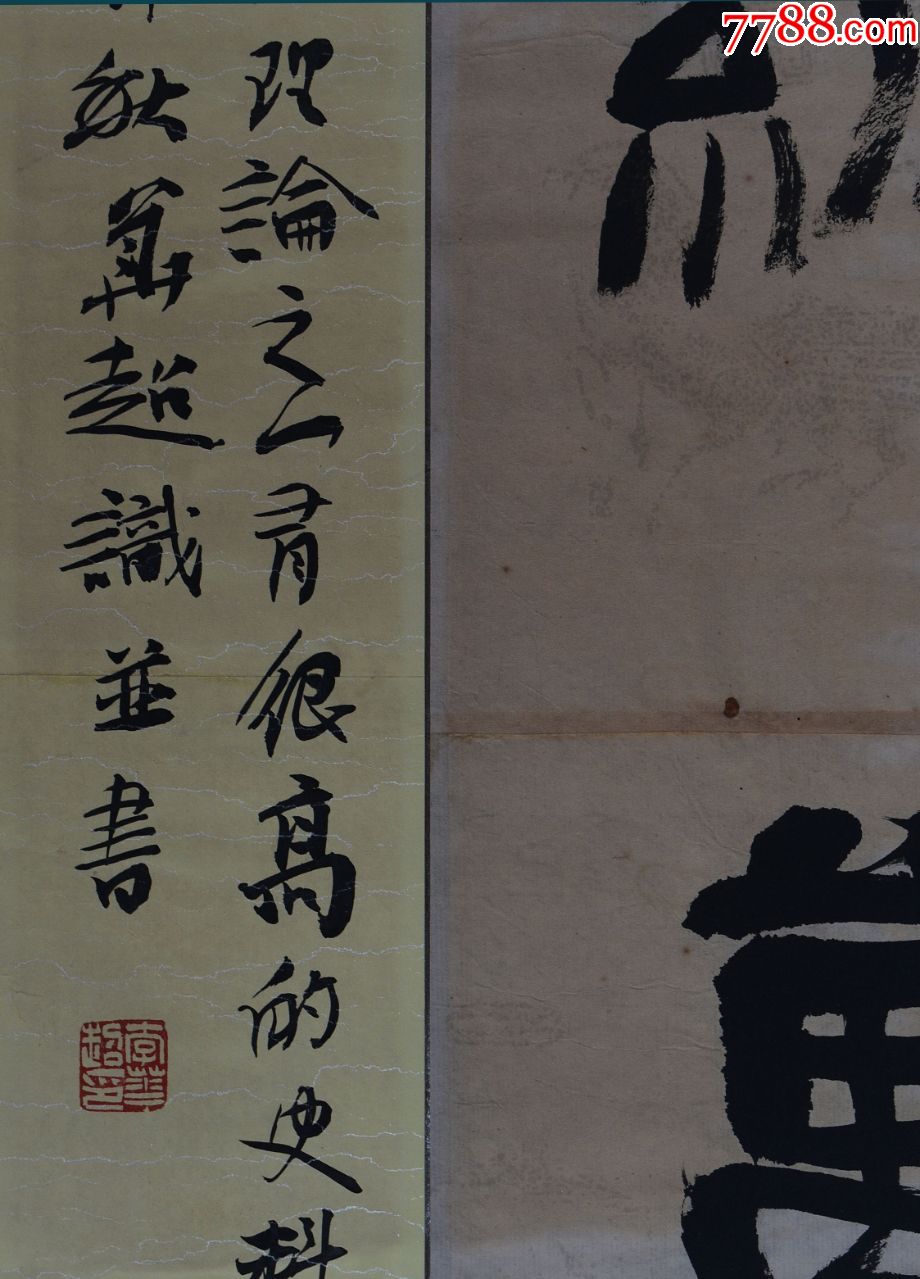 7788.com
萬
理論之一有很高的史料
秋超識並書
李超印